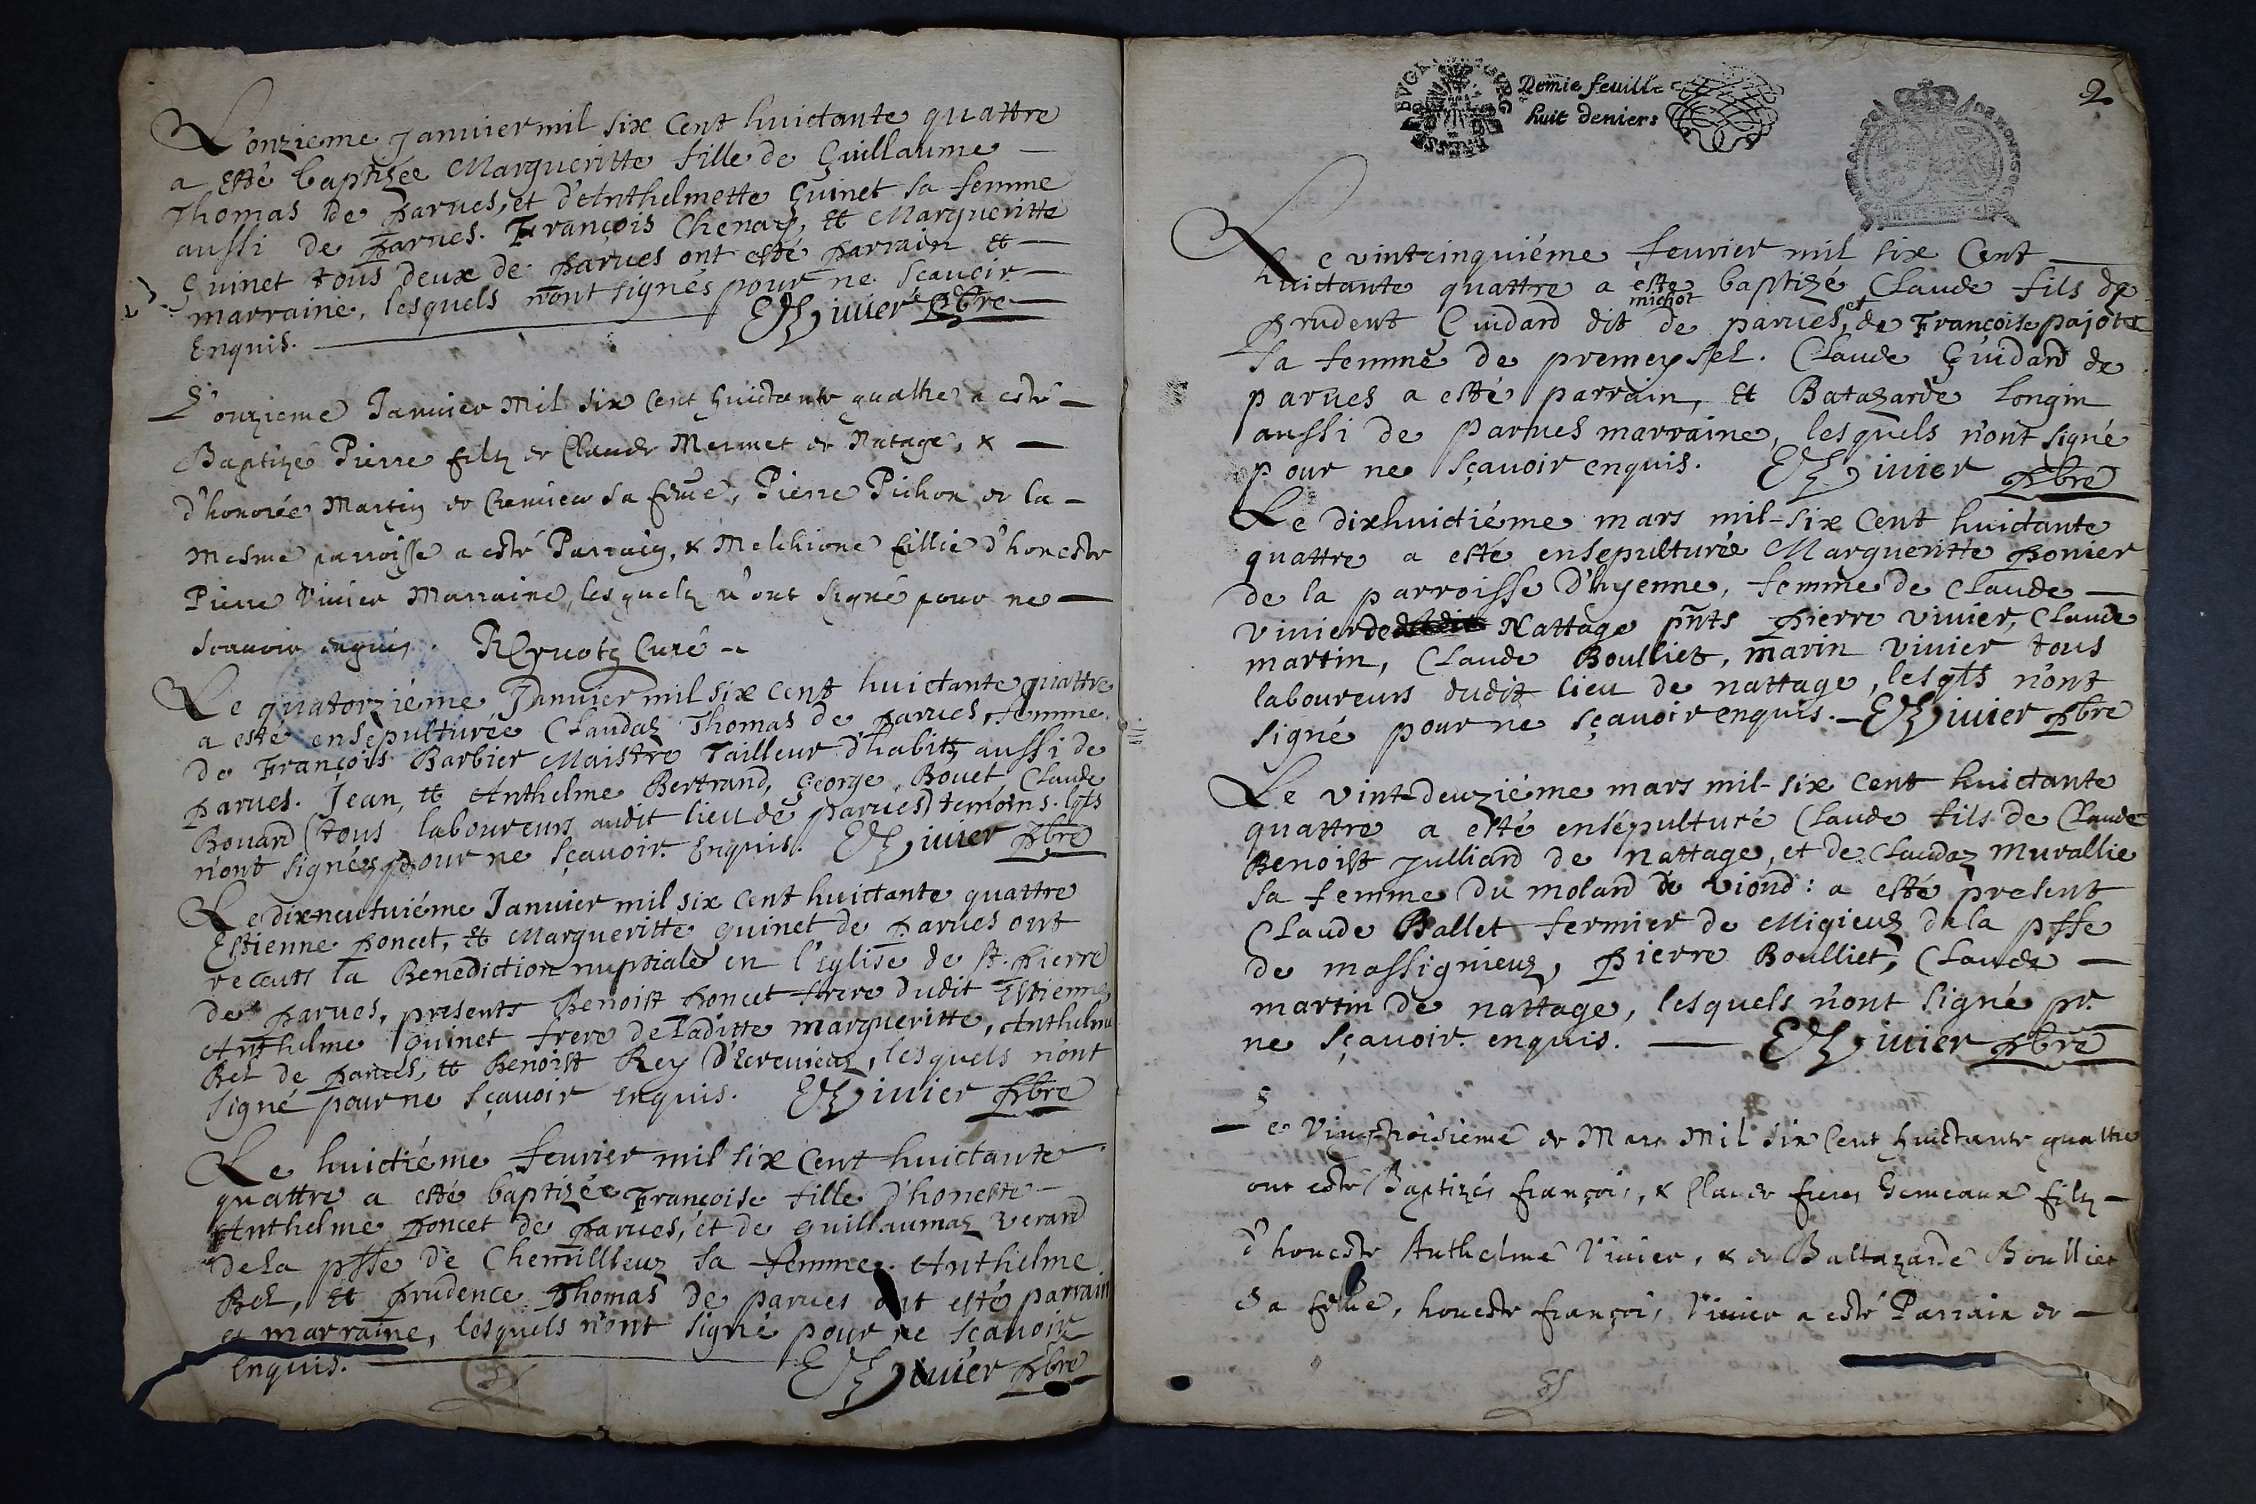 L'onzieme Januier mil six cent huictante quattre
a esté baptizée Margueritte fille de Guillaume
Thomas de parues, et d'Anthelmette Guinet sa femme
aussi de parues. François Chenay, et Margueritte
Guinet tous deux de parues ont esté parrain et
marraine, lesquels n'ont signés pour ne sçauoir
Enquis. Viuier pbre
L'onzieme Januier Mil six Cent huictante quattre a esté
Baptizé Pierre filz de Claude Mermet de Natage, &
d'honorée Martin de Cremieu sa feme, Pierre Pichon de la
mesme parroisse a esté Parrain, & Melchione fillie d'honeste
Pierre Viuier Marraine, lesquelz n'ont signé pour ne
scauoir enquis. Curé
Le quatorziéme Januier mil six cent huictante quattre
a esté ensepulturée Claudaz Thomas de parues, femme
de François Barbier Maistre Tailleur d'habitz aussi de
parues. Jean, et Anthelme Bertrand, George Bouet, Claude
Bouard (tous laboureurs audit lieu de parues) temoins. lqts
n'ont signés pour ne sçauoir. Enquis. Viuier pbre
Le dixneufuiéme Januier mil six cent huictante quattre
Estienne poncet, et Margueritte guinet de parues ont
receuts la Benediction nuptiale en l'Eglise de St. pierre
de parues, presents Benoist poncet frere dudit Estienne,
Anthelme guinet frere deladitte margueritte, Anthelme
Bel de parues, et Benoist Rey D'Ecreuieuz, lesquels n'ont
signé pour ne sçauoir enquis. Viuier pbre
Le huictiéme feurier mil six cent huictante
quattre a esté baptizée Françoise fille d'honeste
Anthelme poncet de parues, et de guillaumaz Verard
dela psse de Chemillieuz sa femme. Anthelme
Bel, et prudence Thomas de parues ont esté parrain
et marraine, lesquels n'ont signé pour ne sçauoir
Enquis. Viuier pbre
Demie feuille
huit deniers
2
Le vintcinquiéme feurier mil six Cent
huictante quattre a esté baptizé Claude fils de
michot
prudent Guidard dit de parues, et de Françoise pajot
sa femme de premeysel. Claude Guidard de
parues a esté parrain, et Batazarde Longin
aussi de Parues marraine, lesquels n'ont signé
pour ne sçauoir enquis. Viuier pbre
Le dixhuictiéme mars mil-six Cent huictante
quattre a esté ensepulturée Margueritte ponier
de la parroisse d'hyenne, femme de Claude
viuier de Nattage pnts pierre viuier, Claude
martin, Claude Boulliet, marin viuier tous
laboureurs dudit lieu de nattage, lesqts n'ont
signé pour ne sçauoir enquis. Viuier pbre
Le vint-deuziéme mars mil-six cent huictante
quattre a esté ensépulturé Claude fils de Claude
Benoist Julliard de Nattage, et de Claudaz Murallie
sa femme du molard de viond: a esté present
Claude Ballet fermier de Migieuz dela psse
de massignieuz, pierre Boulliet, Claude
martin de nattage, lesquels n'ont signé pr.
ne sçauoir. enquis. Viuier pbre
Le Vingtroisieme de Mars Mil six Cent huictante quattre
ont esté Baptizés françois, & Claude freres Gemeaux filz
d'honeste Anthelme Viuier, & de Baltazarde Boulliet
sa feme, honeste françois Viuier a esté Parrain de